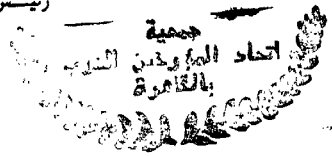 رئيس
جمعية
اتحاد المؤرخين العرب
بالقاهرة